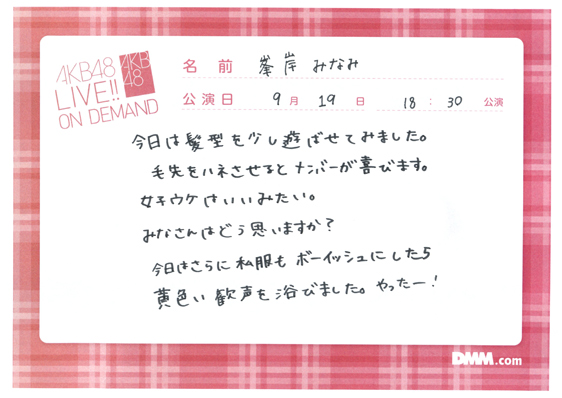 AKB48
LIVE!!
ON DEMAND
AKB
48
名前 峯岸 みなみ
公演日 9月 19日 18:30 公演
今日は髪型を少し遊ばせてみました。
毛先をハネさせるとメンバーが喜びます。
女子ウケはいいみたい。
みなさんはどう思いますか?
今日はさらに私服もボーイッシュにしたら
黄色い歓声を浴びました。やったー!
DMM.com